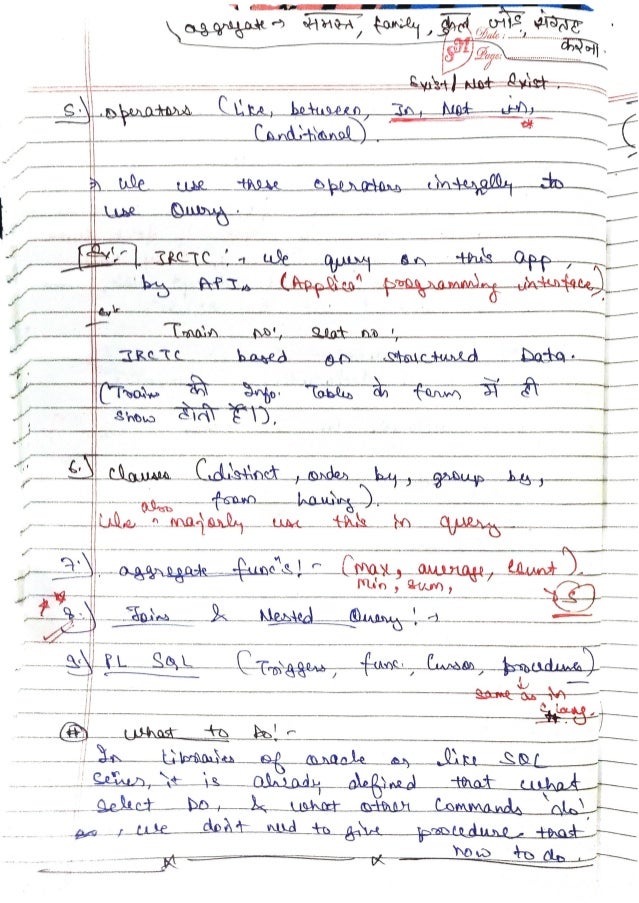 aggregate → समस्त, family, कुल जोड़, संगठित करना.
Date:
Page:
Exist / Not Exist.
5.) operators (Like, between, In, Not in,
Conditional).
→ We use these operators integally to
use Query.
Ex:- IRCTC :→ We query on this app
by APIs (Applicaⁿ programming interface)
Train no:, seat no:,
IRCTC based on structured Data.
(Train की Info. Tables के form में ही
show होती हैं।).
6.) Clauses (distinct, order by, group by,
from having).
We also majorly use this in query
7.) aggregate funcⁿs:- (max, average, count)
min, sum, → 5
8.) Joins & Nested Query :→
9.) PL SQL (Triggers, func, Cursor, procedures)
same as in
C lang.
(#) What to Do:-
In Libraries of oracle or like SQL
series, it is already defined that what
select Do, & what other Commands 'do'
so, we don't need to give procedure that
how to do.